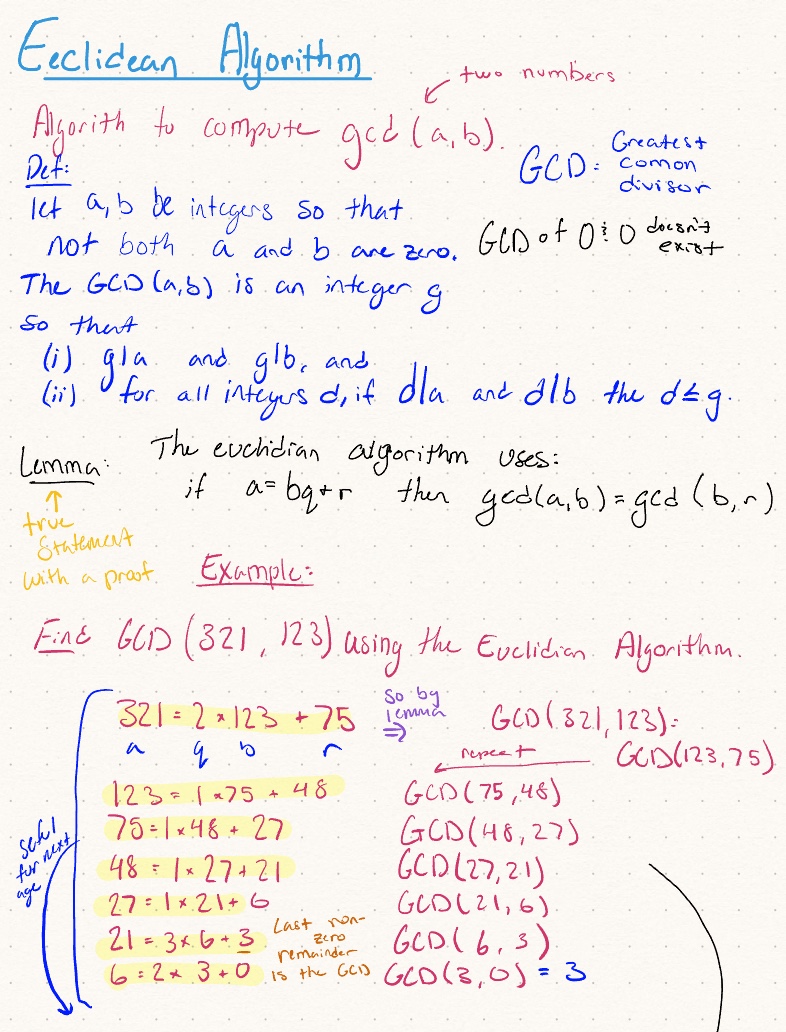 Eeclidean Algorithm
two numbers
Algorith to compute gcd (a,b).
GCD: Greatest
comon
divisor
Def:
let a,b be integers so that
not both a and b are zero.
GCD of 0 & 0 doesn't
exist
The GCD(a,b) is an integer g
so that
(i) g|a and g|b, and
(ii) for all integers d, if d|a and d|b the d≤g.
Lemma: The euclidian algorithm uses:
if a=bq+r then gcd(a,b)=gcd (b,r)
↑
true
Statement
with a proof
Example:
Find GCD (321, 123) using the Euclidian Algorithm.
321 = 2 × 123 + 75
a q b r
so by
lemma
⇒
GCD(321,123)=
GCD(123,75)
repeat
123 = 1 × 75 + 48 GCD(75,48)
75=1×48+27 GCD(48,27)
48 = 1×27+21 GCD(27,21)
27=1×21+6 GCD(21,6)
21=3×6+3 GCD(6,3)
6=2×3+0 GCD(3,0) = 3
Last non-
zero
remainder
is the GCD
for next
age